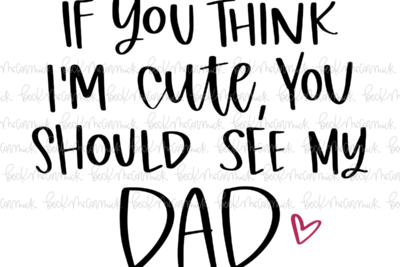 IF YOU THINK
I'M cute, YOU
SHOULD SEE MY
DAD